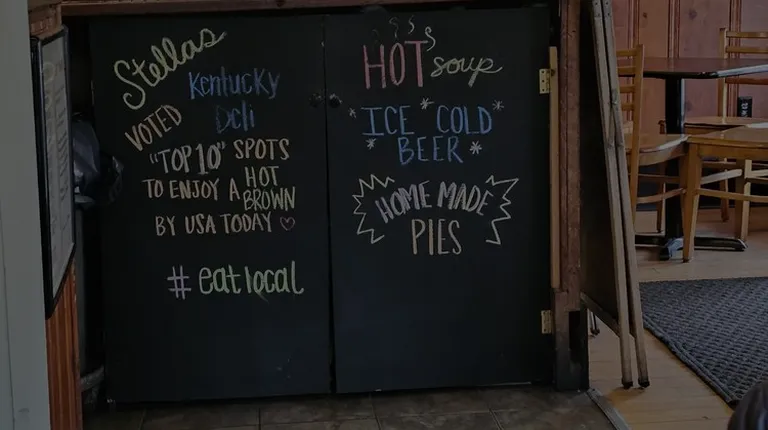 Stellas
Kentucky
Deli
VOTED
"TOP 10" SPOTS
TO ENJOY A HOT
BROWN
BY USA TODAY ♡
#eatlocal
HOT soup
ICE COLD
BEER
HOME MADE
PIES